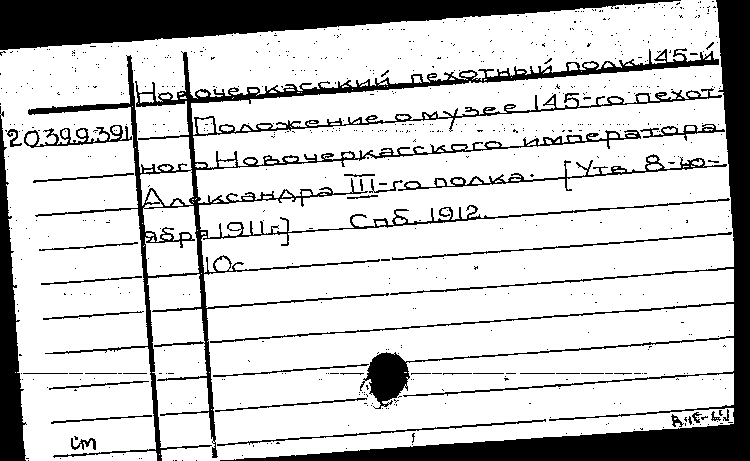 Новочеркасский пехотный полк. 145-й
20.39.9.391
Положение о музее 145-го пехот-
ного Новочеркасского императора
Александра III-го полка. [Утв. 8-
ября 1911г.] Спб. 1912.
10с.
см